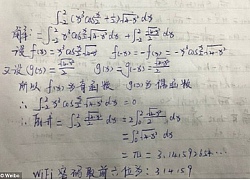 ∫₋₂² (x³cos x/2 + 1/2)√(4-x²) dx
解：= ∫₋₂² x³cos x/2 √(4-x²) dx + ∫₋₂² √(4-x²)/2 dx
设 f(x) = x³cos x/2 √(4-x²)   f(-x) = -x³cos x/2 √(4-x²)
又设 g(x) = √(4-x²)/2   g(-x) = √(4-x²)/2
所以 f(x)为奇函数   g(x)为偶函数
∴ ∫₋₂² x³cos x/2 √(4-x²) dx = 0
∴ 原式 = ∫₋₂² √(4-x²)/2 dx = 2∫₀² √(4-x²)/2 dx
= ∫₀² √(4-x²) dx
= π = 3.141592654…
WiFi 密码取前六位为：314159
© Weibo